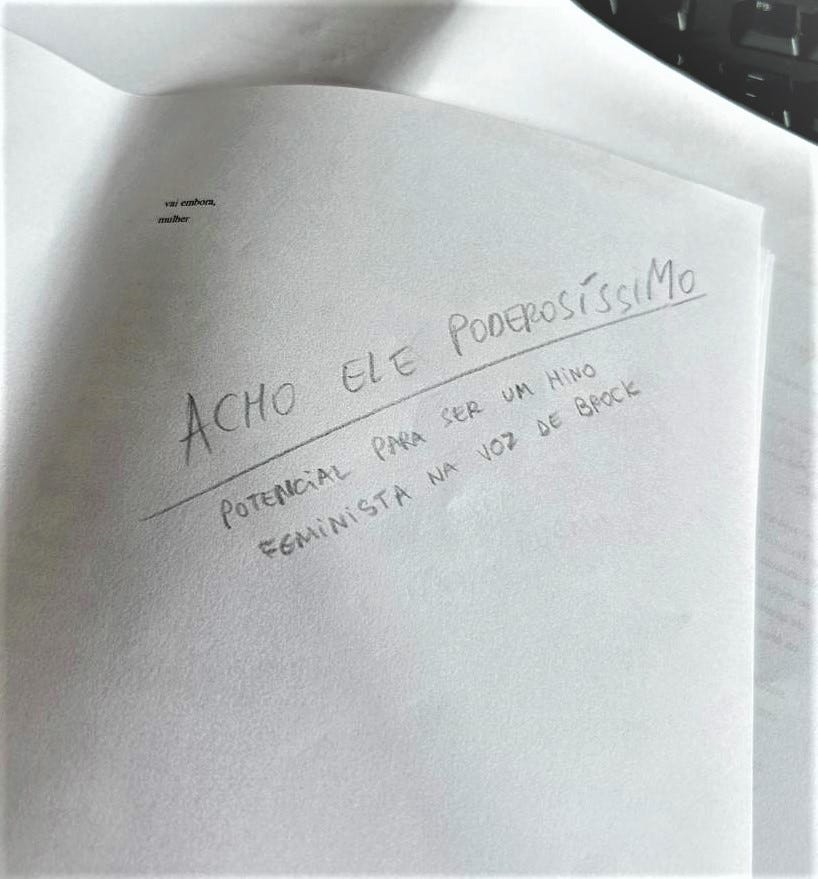 vai embora,
mulher
ACHO ELE PODEROSÍSSIMO
POTENCIAL PARA SER UM HINO
FEMINISTA NA VOZ DE BROCK